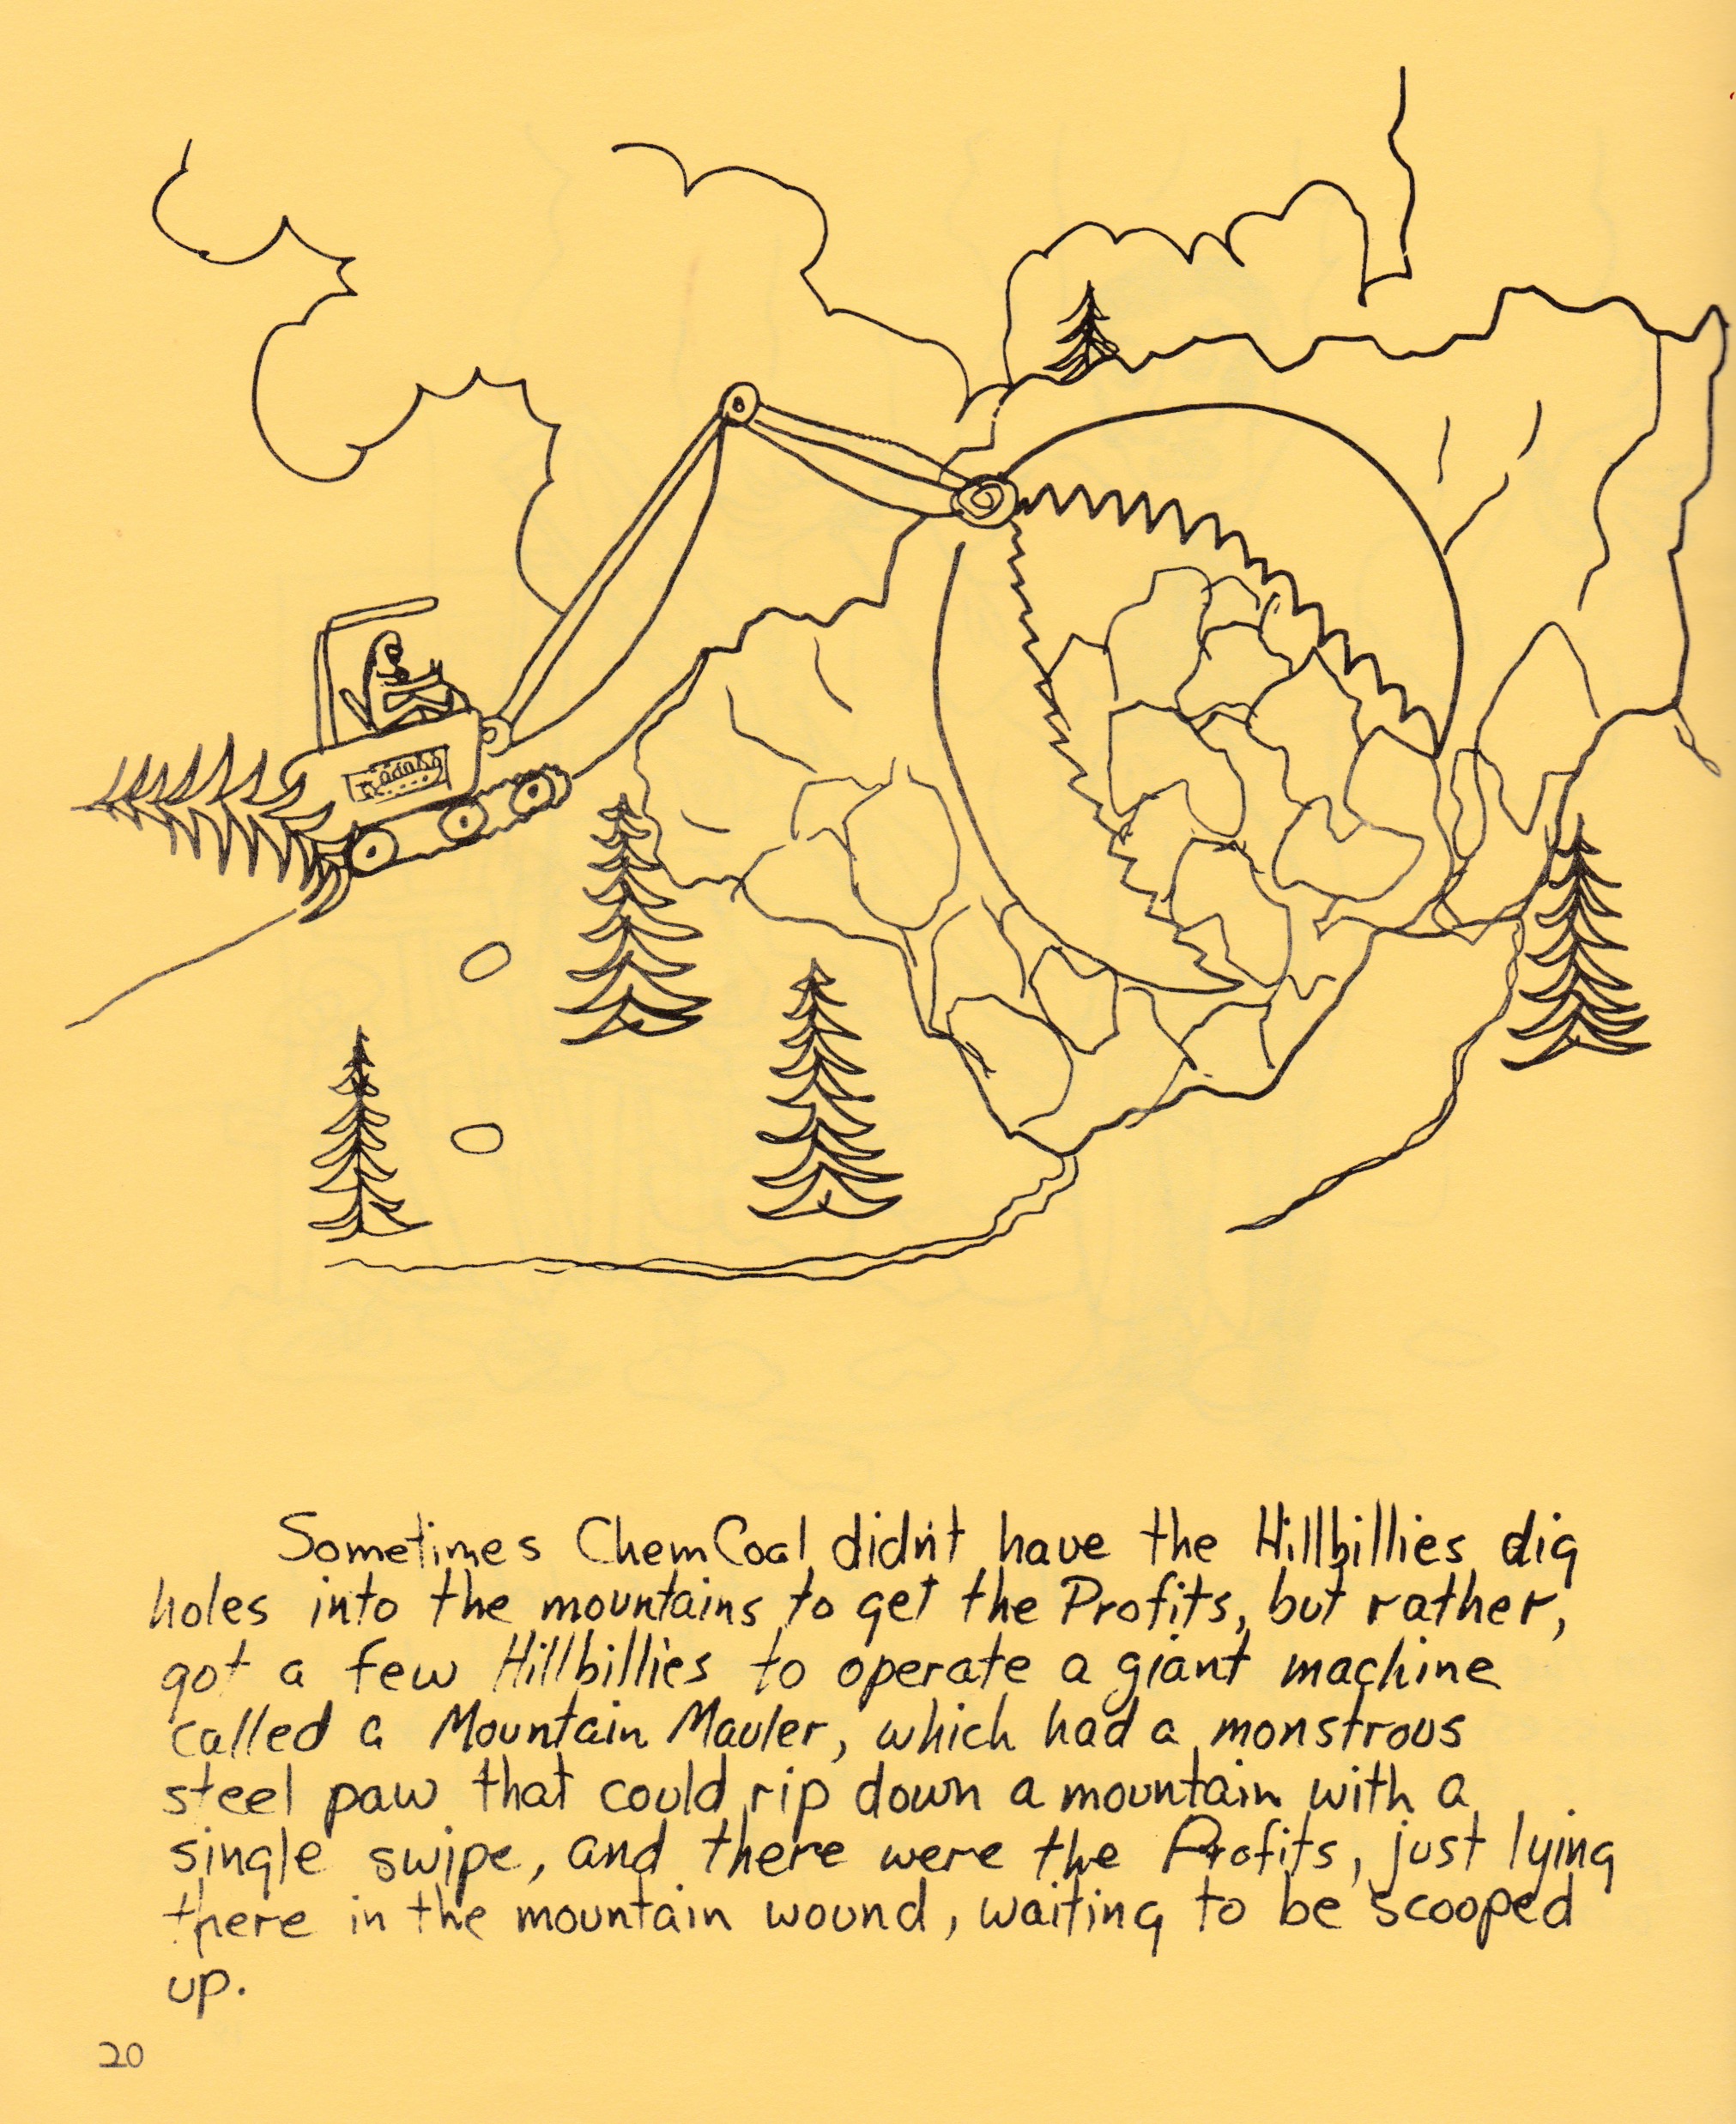 Sometimes ChemCoal didn't have the Hillbillies dig
holes into the mountains to get the Profits, but rather,
got a few Hillbillies to operate a giant machine
called a Mountain Mauler, which had a monstrous
steel paw that could rip down a mountain with a
single swipe, and there were the Profits, just lying
there in the mountain wound, waiting to be scooped
up.
20